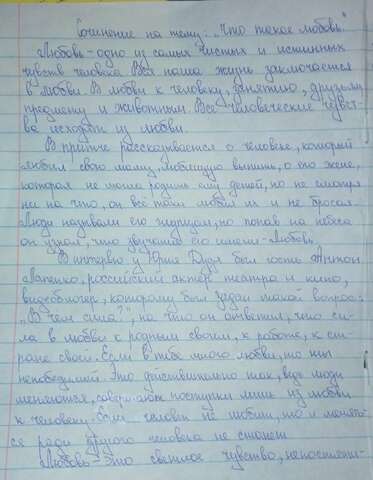 Сочинение на тему: „Что такое любовь"
Любовь - одно из самых чистых и истинных
чувств человека. Вся наша жизнь заключается
в любви. В любви к человеку, занятию, друзьям,
предмету и животным. Все человеческие чувст-
ва исходят из любви.
В притче рассказывается о человеке, который
любил свою маму, любящую выпить, о его жене,
которая не могла родить ему детей, но не смотря
ни на что, он всё таки любил их и не бросал.
Люди называли его глупцом, но попав на небеса
он узнал, что звучание его имени - Любовь.
В интервью у Юрия Дудя был гость Антон
Лапенко, российский актёр театра и кино,
видеоблогер, которому был задан такой вопрос:
„В чём сила?", на что он ответил, что си-
ла в любви к родным своим, к работе, к ст-
ране своей. Если в тебе много любви, то ты
непобедимый. Это действительно так, ведь люди
меняются, совершают поступки лишь из любви
к человеку. Если человек не любит, то и менять-
ся ради другого человека не станет
Любовь - это светлое чувство, непостижи-